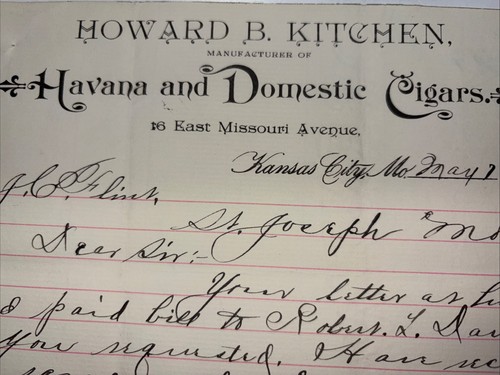 HOWARD B. KITCHEN,
MANUFACTURER OF
Havana and Domestic Cigars.
16 East Missouri Avenue,
Kansas City, Mo. May 1
J. C. Flint,
St. Joseph Mo
Dear Sir:-
Your letter at
paid bill to Robert. L. Dav
you requested. Have rec